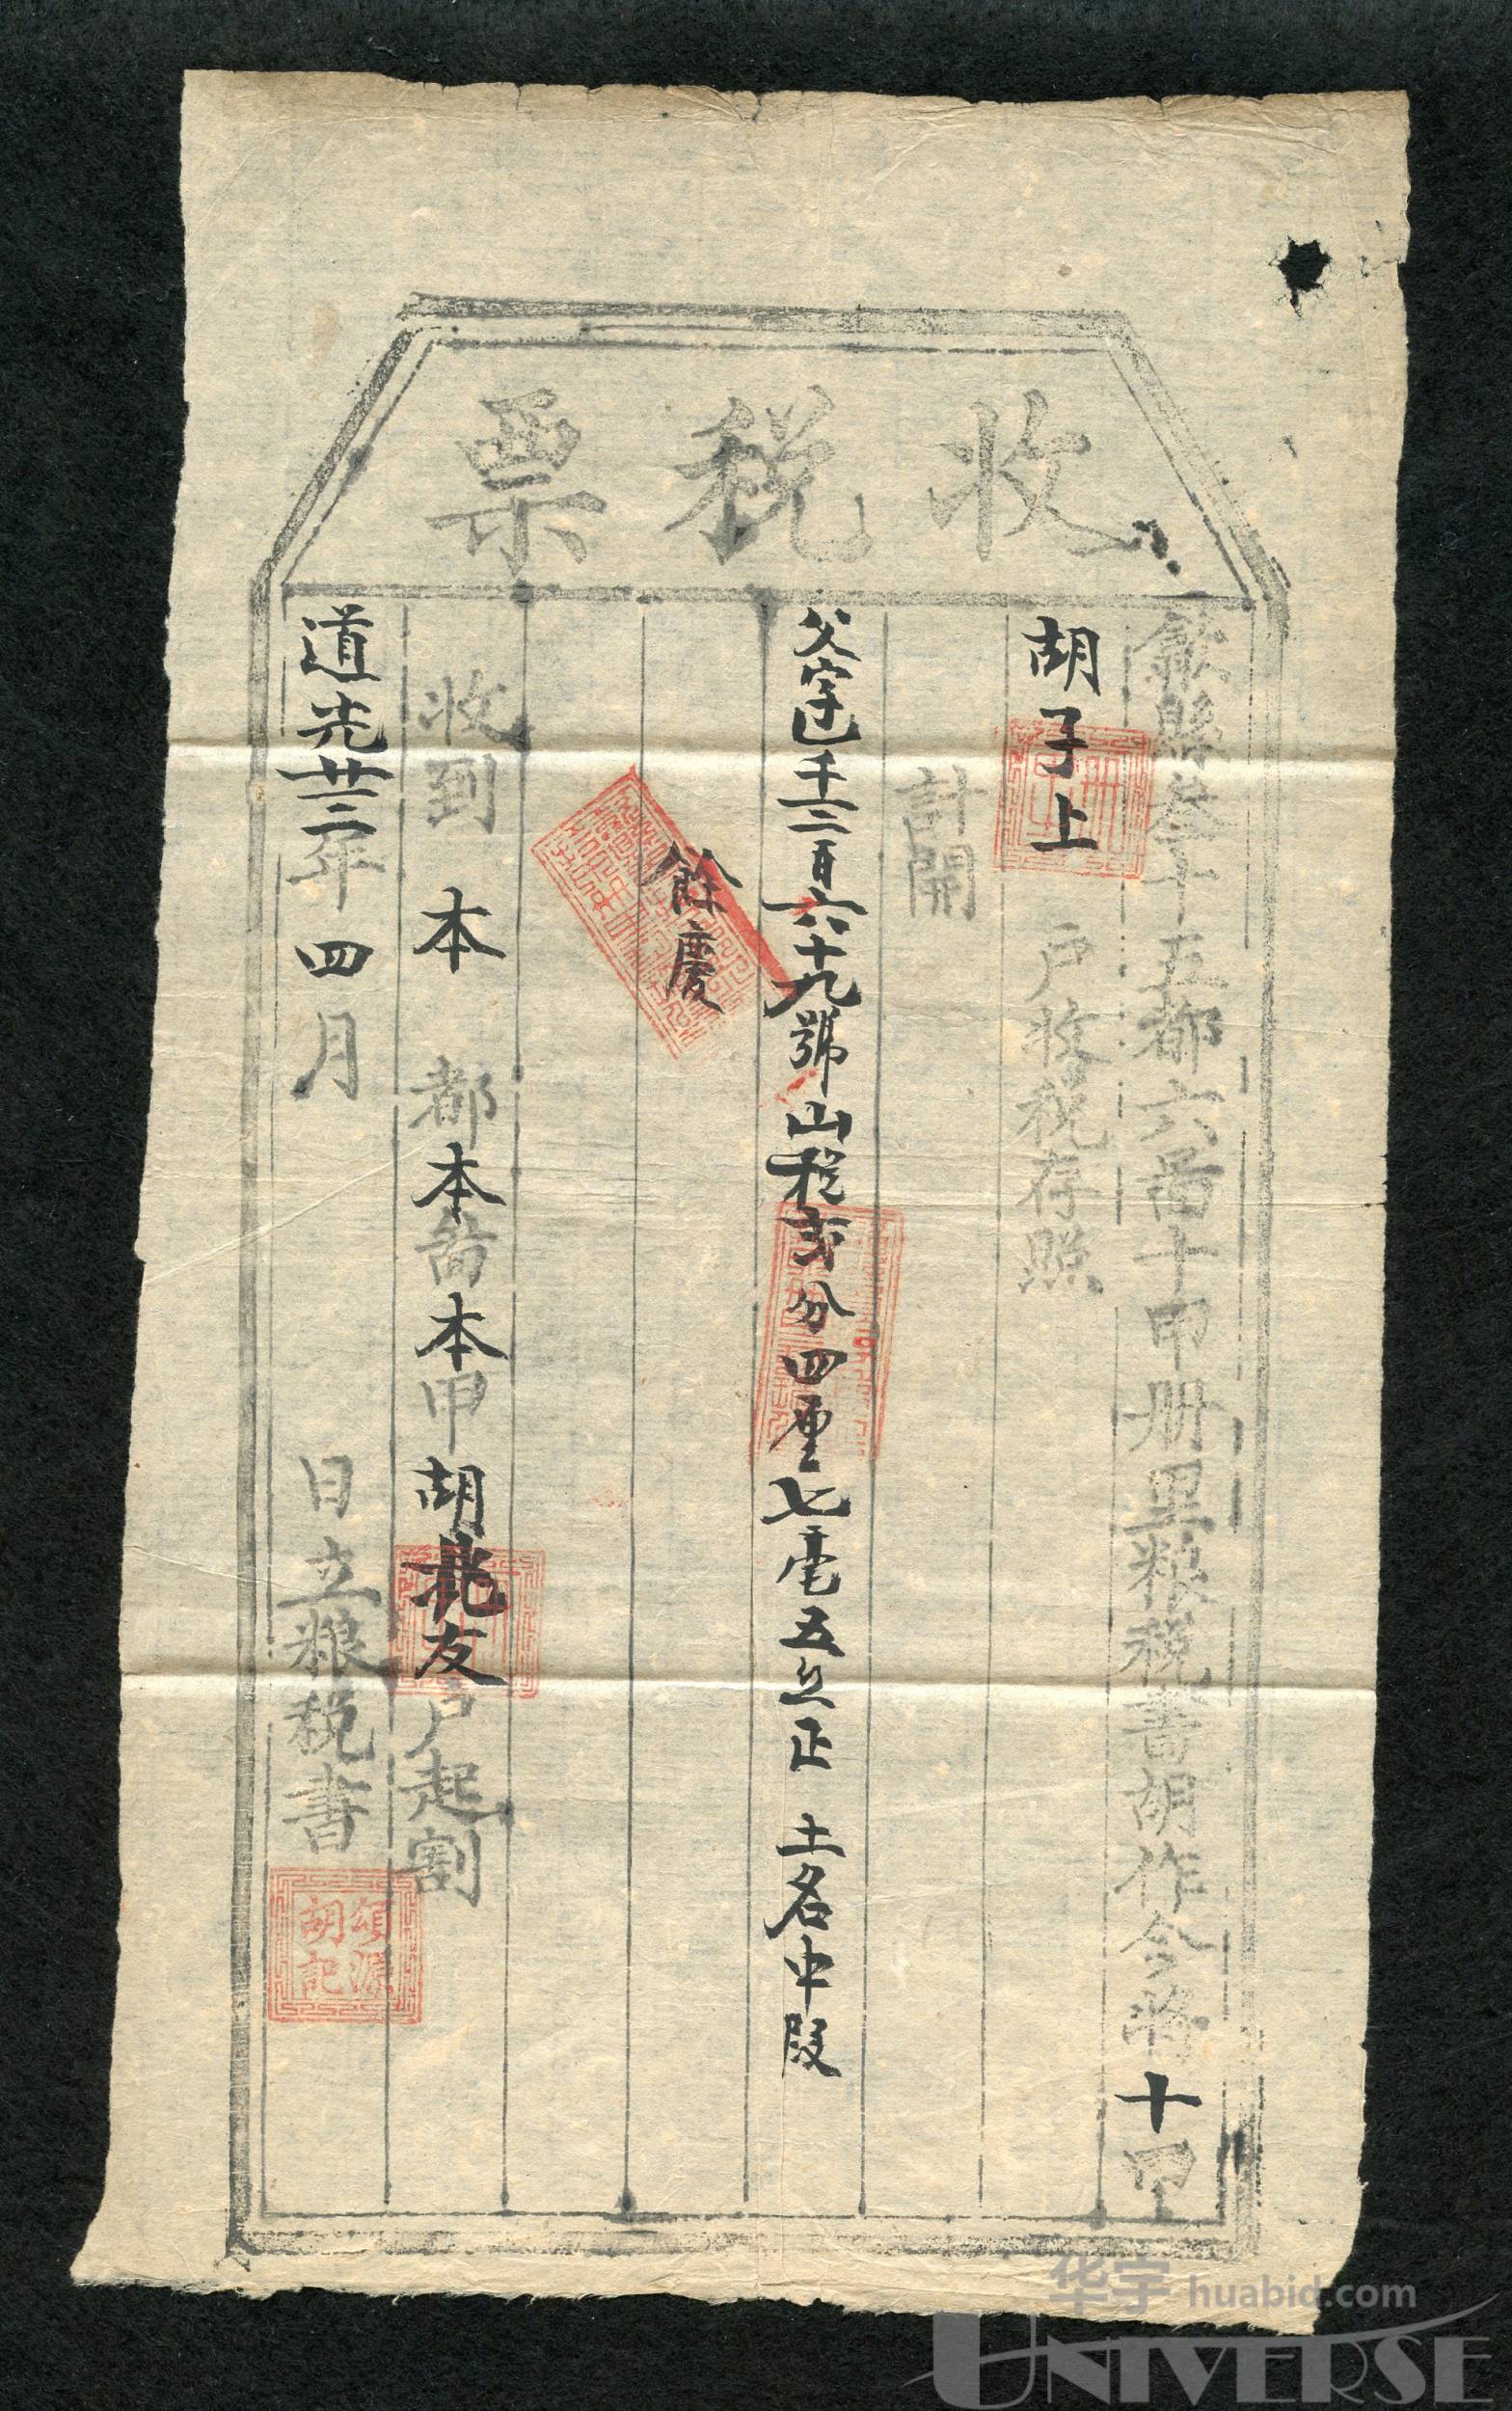 收税票
歙縣叁十五都六啚十甲册里粮税書胡作今将十甲
胡子上戶收税存照
計開
父字乙千二百六十九號山稅弍分四厘七毫五糸正 土名中段
餘慶
收到本都本啚本甲胡兆友戶起割
道光廿三年四月 日立粮税書
頌源胡記
华宇 huabid.com
UNIVERSE